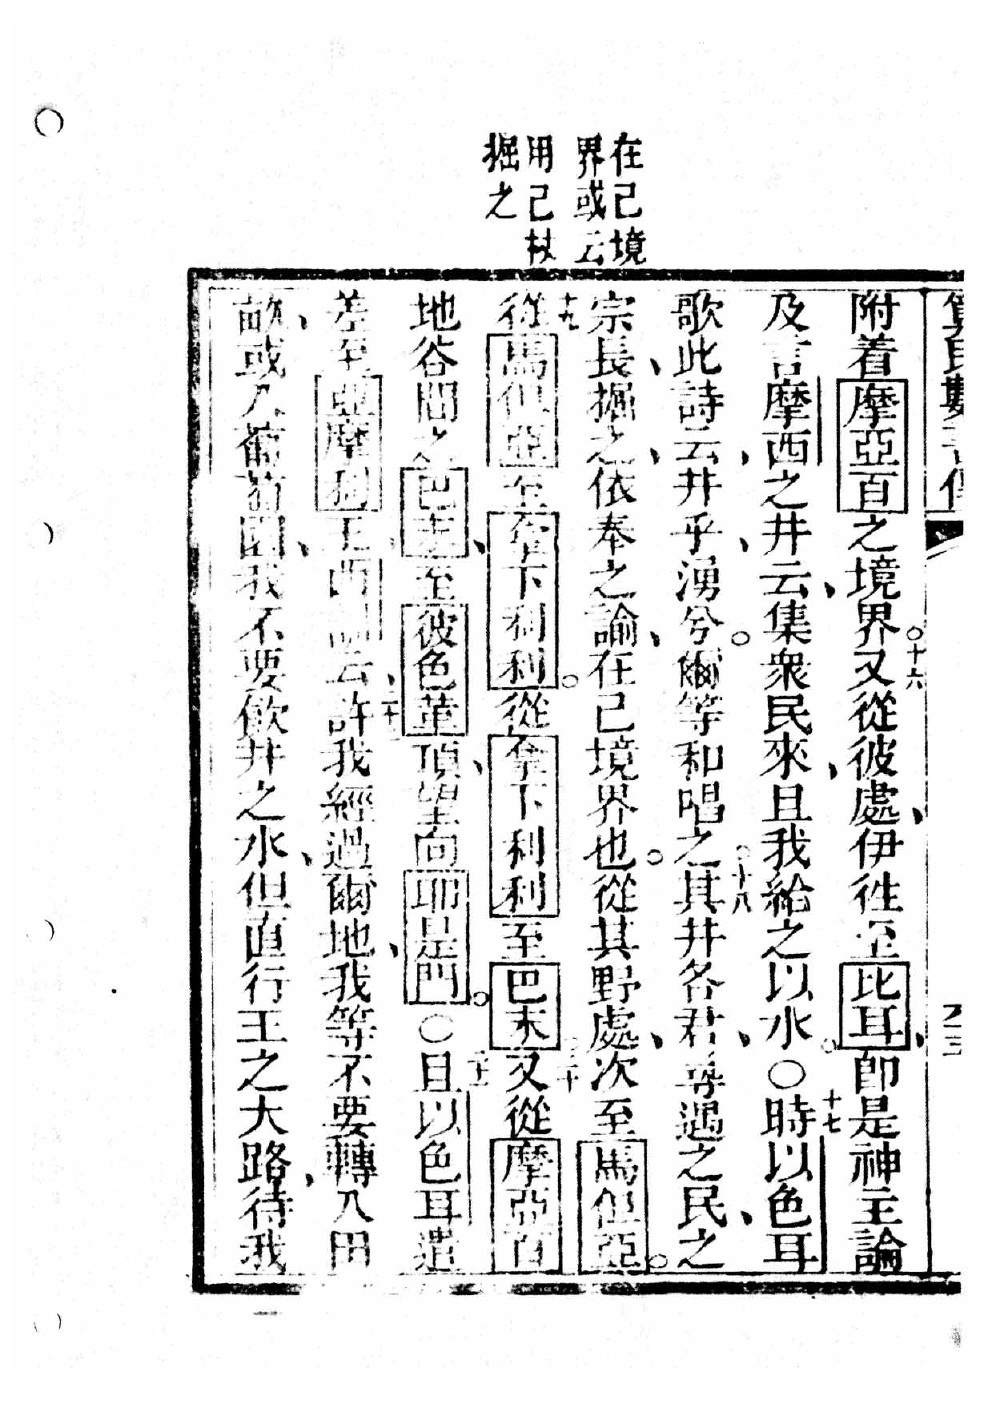 在己境
界或云
用己杖
掘之
附着摩亞百之境界○十六又從彼處、伊徃至比耳、即是神主論
及言摩西之井云、集衆民來、且我給之以水○○十七時以色耳
歌此詩云、井乎、湧兮○爾等和唱之○十八其井各君、尊遇之民、之
宗長、掘之、依奉之論、在己境界也○從其野處、次至馬但亞○
十九從馬但亞至拿下利利○從拿下利利至巴末○二十又從摩亞百
地谷間之巴末、至彼色葦頂、望向耶是門○○二十一且以色耳遣
差至亞摩利王西訓云、二十二許我經過爾地、我等不要轉入田
畝、或入葡萄園、我不要飲井之水、但直行王之大路、待我